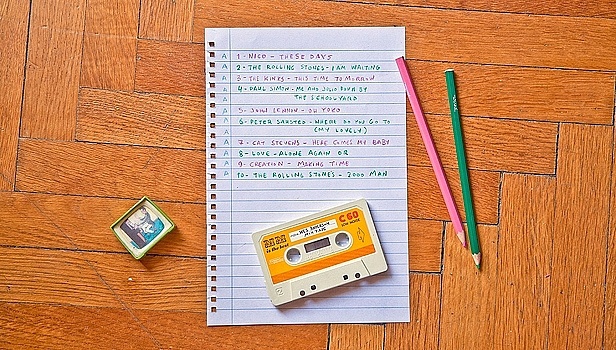 A 1- NICO - THESE DAYS
A 2- THE ROLLING STONES - I AM WAITING
A 3- THE KINKS - THIS TIME TO MORROW
A 4- PAUL SIMON - ME AND JULIO DOWN BY
A THE SCHOOLYARD
A 5- JOHN LENNON - OH YOKO
A 6- PETER SARSTED - WHERE DO YOU GO TO
(MY LOVELY)
A 7- CAT STEVENS - HERE COMES MY BABY
A 8- LOVE - ALONE AGAIN OR
A 9- CREATION - MAKING TIME
A 10- THE ROLLING STONES - 2000 MAN
C 60
LOW NOISE
is the best